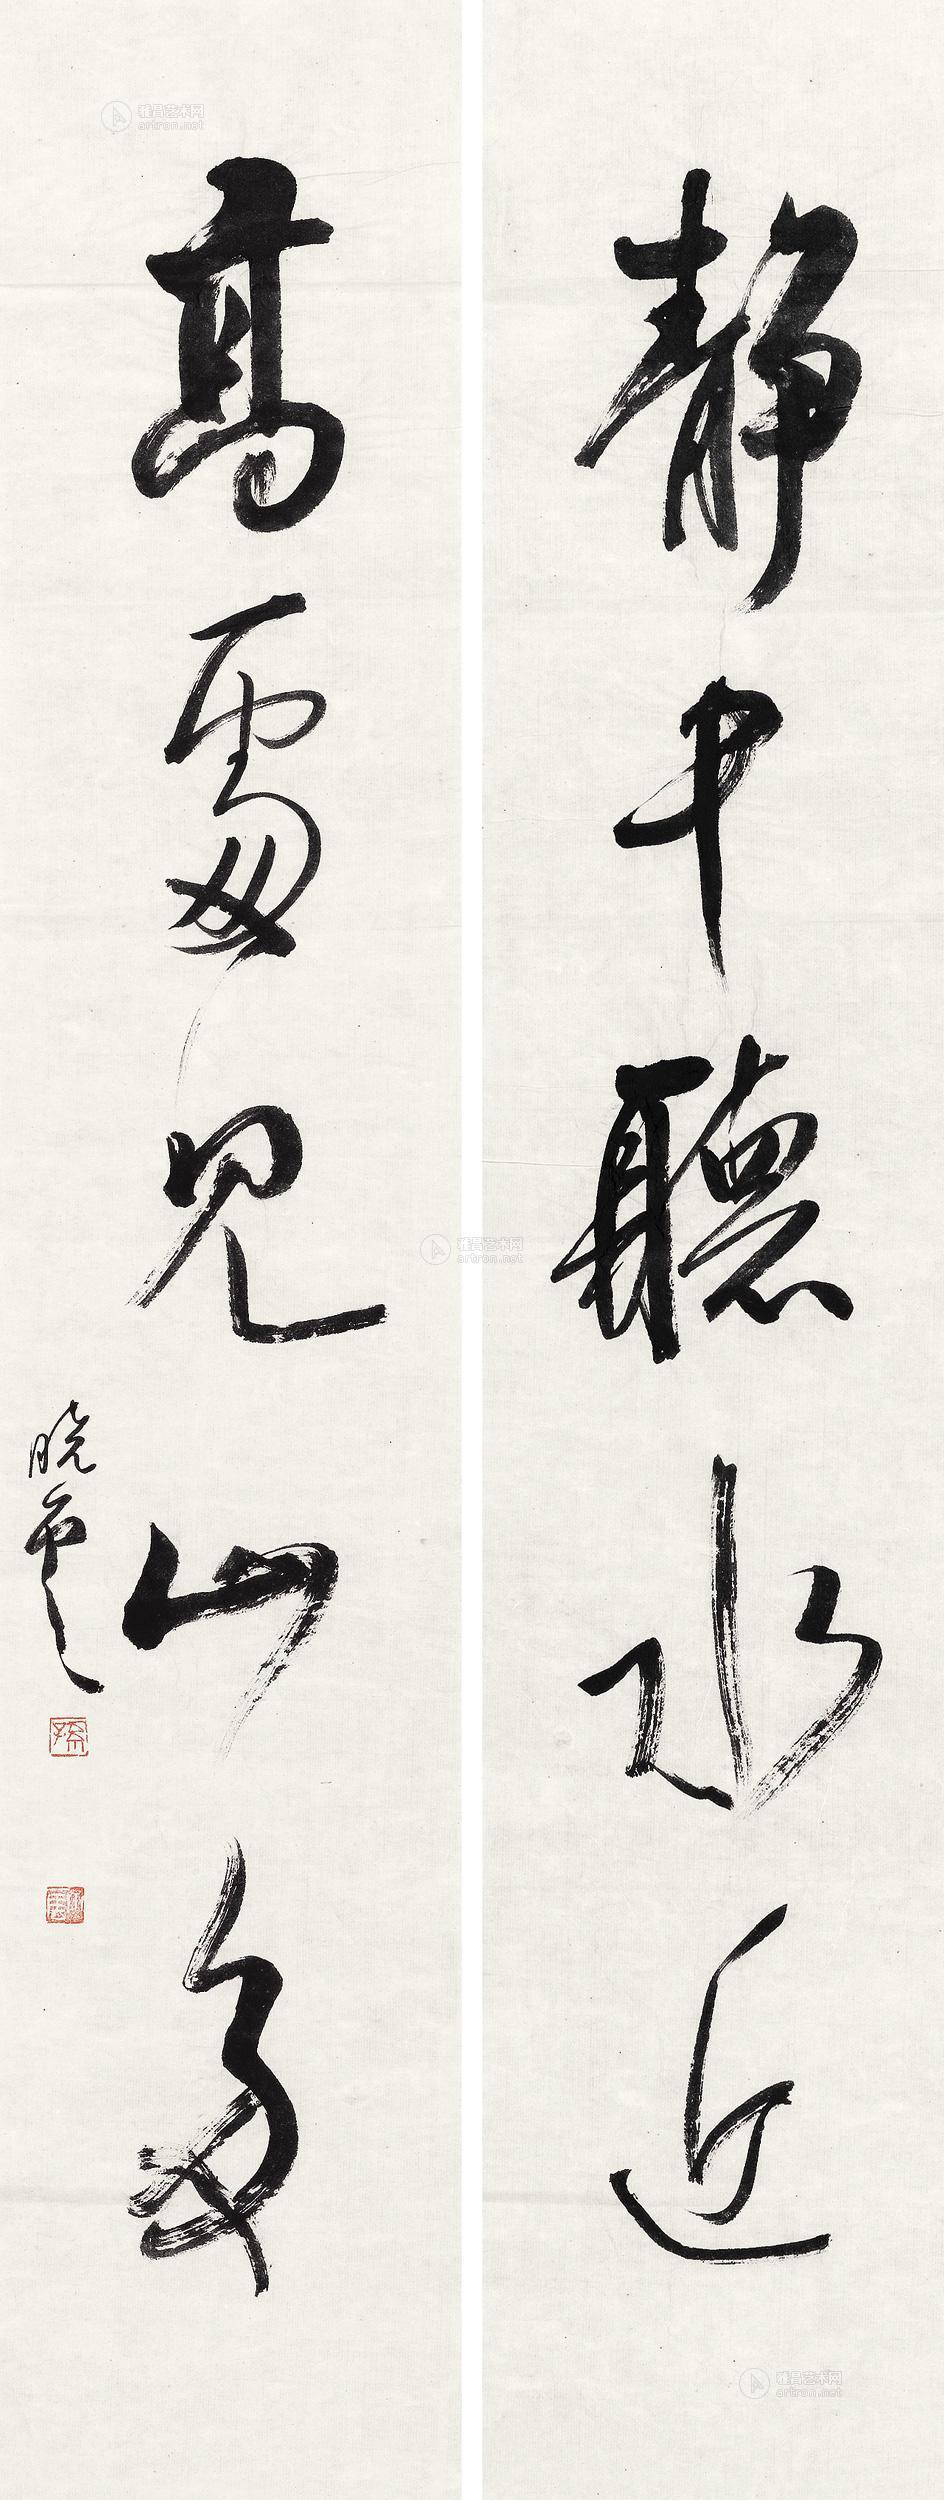 靜中聽水近
高處見山多
晓雲
孫
雅昌艺术网
artron.net
雅昌艺术网
artron.net
雅昌艺术网
artron.net